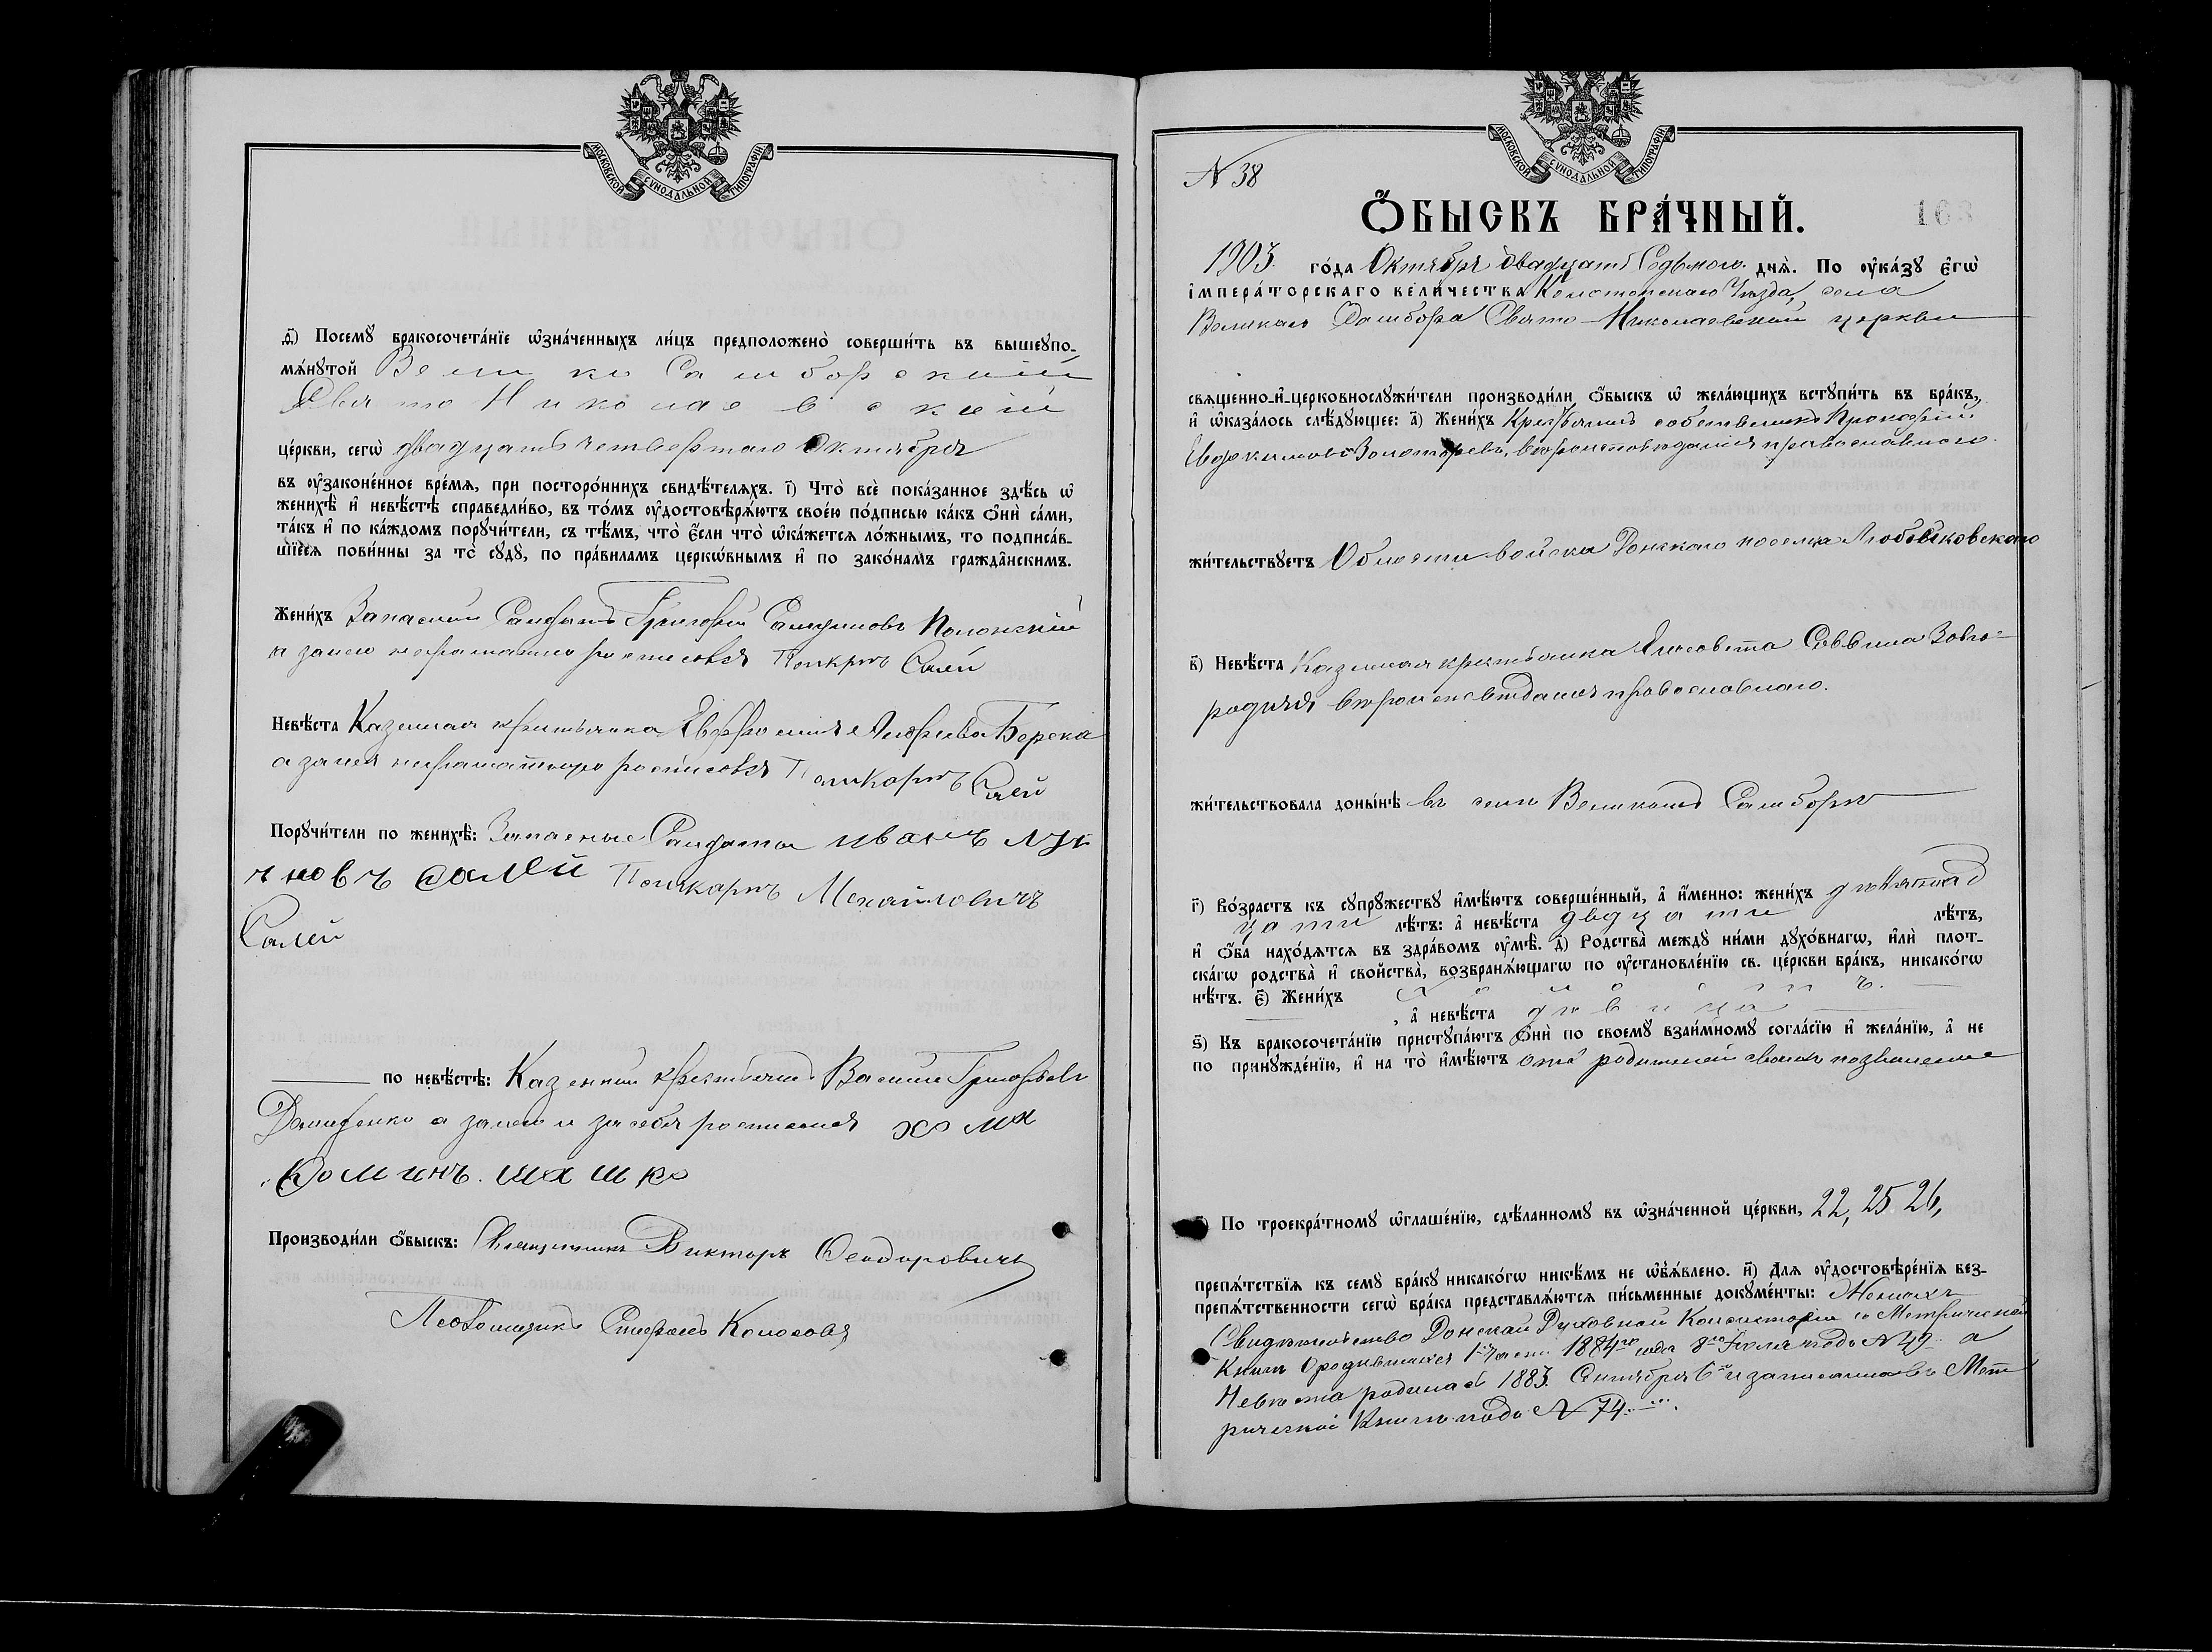 МОСКОВСКОЙ СУНОДАЛЬНОЙ ТИПОГРАФІИ
д҃) Посемꙋ̀ бракосочета́нїе ѡ҆зна́ченныхъ ли́цъ предположено̀ соверши́ть въ вышеꙋпо-
мѧ́нꙋтой Велико Самборской
Свято Николаевской
це́ркви, сегѡ̀ двадцать четвертого Октября
въ ᲂу҆зако́не́нное вре́мѧ, при посторо́ннихъ свидѣ́телѧхъ. і҃) Что̀ всѐ пока́занное здѣ́сь ѡ҆
женихѣ̀ и҆ невѣ́стѣ справедли́во, въ то́мъ ᲂу҆достовѣрѧ́ютъ свое́ю по́дписью ка́къ ѻ҆нѝ са́ми,
та́къ и҆ по ка́ждомъ порꙋчи́тели, съ тѣ́мъ, что̀ є҆́сли что̀ ѡ҆ка́жетсѧ ло́жнымъ, то подписа́в-
шїесѧ пови́нны за то̀ сꙋдꙋ̀, по пра́виламъ церко́внымъ и҆ по зако́намъ гражда́нскимъ.
Жени́хъ Запасный Солдатъ Григорій Полонскій
а занею неграматную росписовся Поикрпъ Салей
Невѣ́ста Казенная крестьянка Евфросинія Берека
а занея неграматную росписовся Поликарпъ Салей
Порꙋчи́тели по женихѣ̀: Запасные Солдаты иванъ лук
яновъ салей Поликарпъ Михайловичъ
Салей
по невѣ́стѣ: Казенный крестьянинъ Василій Григорьевъ
а занею и засебя росписався хома
фоминъ. машко
Производи́ли ѻ҆́быскъ: Священникъ Викторъ Феодоровичъ
Псаломщикъ Стефанъ Колосовъ
МОСКОВСКОЙ СУНОДАЛЬНОЙ ТИПОГРАФІИ
N 38
Ѻ҆БЫСКЪ БРА́ЧНЫЙ.
163
1903 го́да Октября двадцать Седьмого днѧ̀. По ᲂу҆ка́зꙋ є҆гѡ̀
і҆мпера́торскаго вели́чества Конотопскаго Уезда, села
Великаго Самбора Свято-Николаевской церкви
свѧщенно-и҆-церковнослꙋжи́тели производи́ли ѻ҆́быскъ ѡ҆ жела́ющихъ встꙋпи́ть въ бра́къ,
и҆ ѡ҆каза́лось слѣ́дꙋющее: а҃) Жени́хъ Крестьянинъ собственникъ Прокофій
Евдокимовъ Золотаревъ, вероисповедания православного
жи́тельствꙋетъ Области войска Донского поселка
в҃) Невѣ́ста Казенная крестьянка Елисовета Саввина Завго-
родняя вероисповедания православного.
жи́тельствовала доны́нѣ въ селе Великомъ Самборе
г҃) Во́зрастъ къ сꙋпрꙋ́жествꙋ и҆мѣ́ютъ соверше́нный, а҆ и҆́менно: жени́хъ девятнад
цати лѣ́тъ: а҆ невѣ́ста двдцати лѣ́тъ,
и҆ ѻ҆́ба нахо́дѧтсѧ въ здра́вомъ ᲂу҆мѣ̀. д҃) Родства̀ междꙋ̀ ни́ми дꙋхо́внагѡ, и҆лѝ плот-
ска́гѡ родства̀ и҆ свойства̀, возбранѧ́ющагѡ по ᲂу҆становле́нїю св. це́ркви бра́къ, никако́гѡ
нѣ́тъ. є҃) Жени́хъ
, а҆ невѣ́ста девица
ѕ҃) Къ бракосочета́нїю пристꙋпа́ютъ ѻ҆нѝ по своемꙋ̀ взаи́мномꙋ согла́сїю и҆ жела́нїю, а҆ не
по принꙋжде́нїю, и҆ на то̀ и҆мѣ́ютъ отъ родителей своихъ позволение
По троекра́тномꙋ ѡ҆глаше́нїю, сдѣ́ланномꙋ въ ѡ҆зна́ченной це́ркви, 22, 25 26,
препѧ́тствїѧ къ семꙋ̀ бра́кꙋ никако́гѡ никѣ́мъ не ѡ҆б̾ѧ́влено. и҃) Длѧ ᲂу҆достовѣре́нїѧ без-
препѧ́тственности сегѡ̀ бра́ка представлѧ́ютсѧ пи́сьменные докꙋме́нты: Женихъ
Свидетельство Донской Духовной Консисторіи Метрической
Книги Ородившихся 1 части 1884го года 8го Іюля подъ N 49. а
Невеста родилась 1883. Сентября 6го и записана въ Мет
рической Книге подъ N 74.